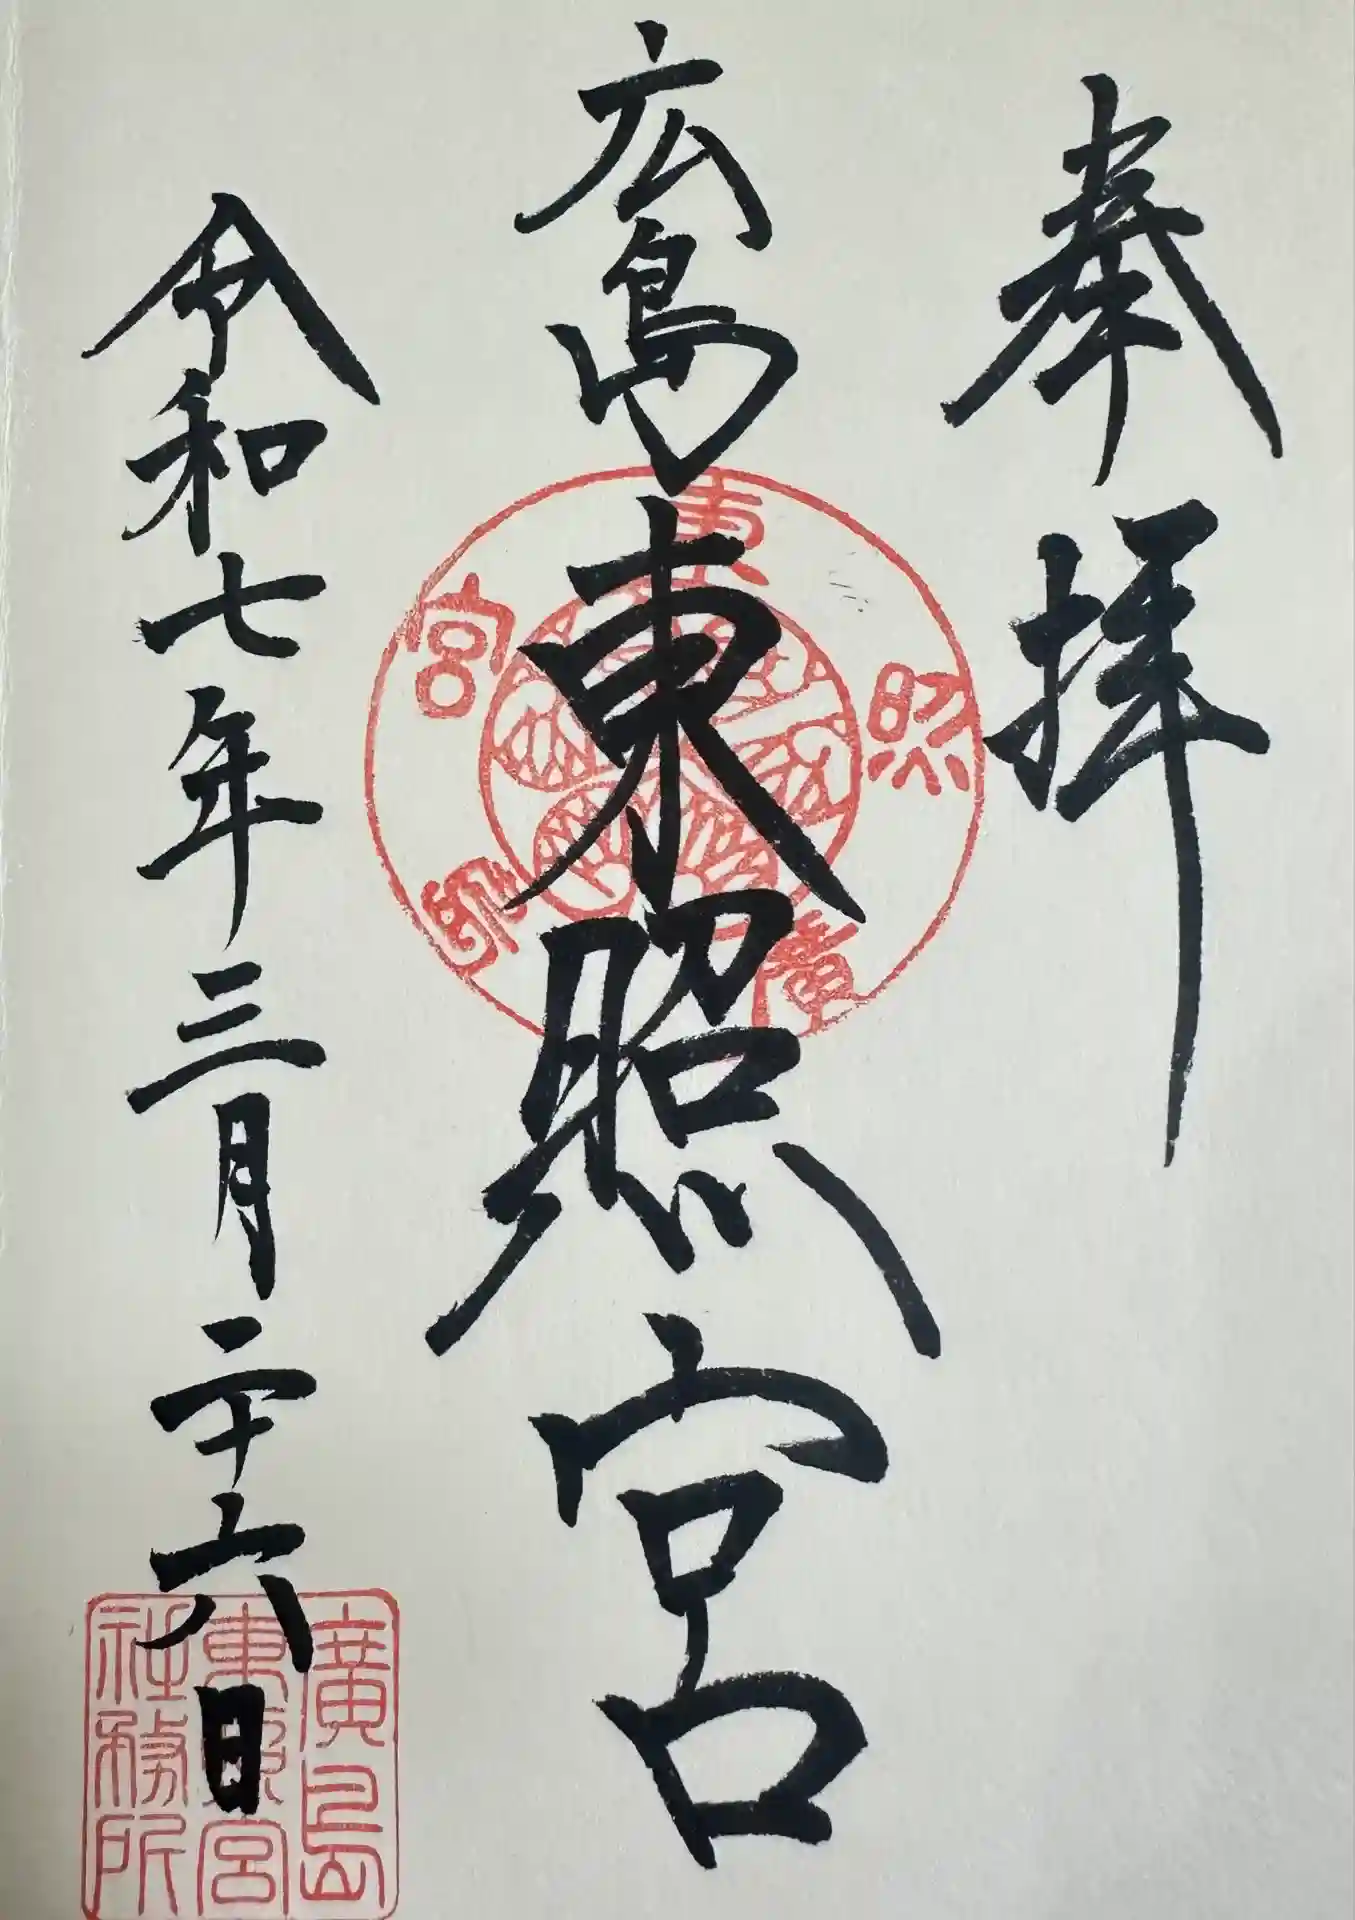 奉拝
広島東照宮
令和七年三月二十六日
廣島東照宮
廣島
東照宮
社務所